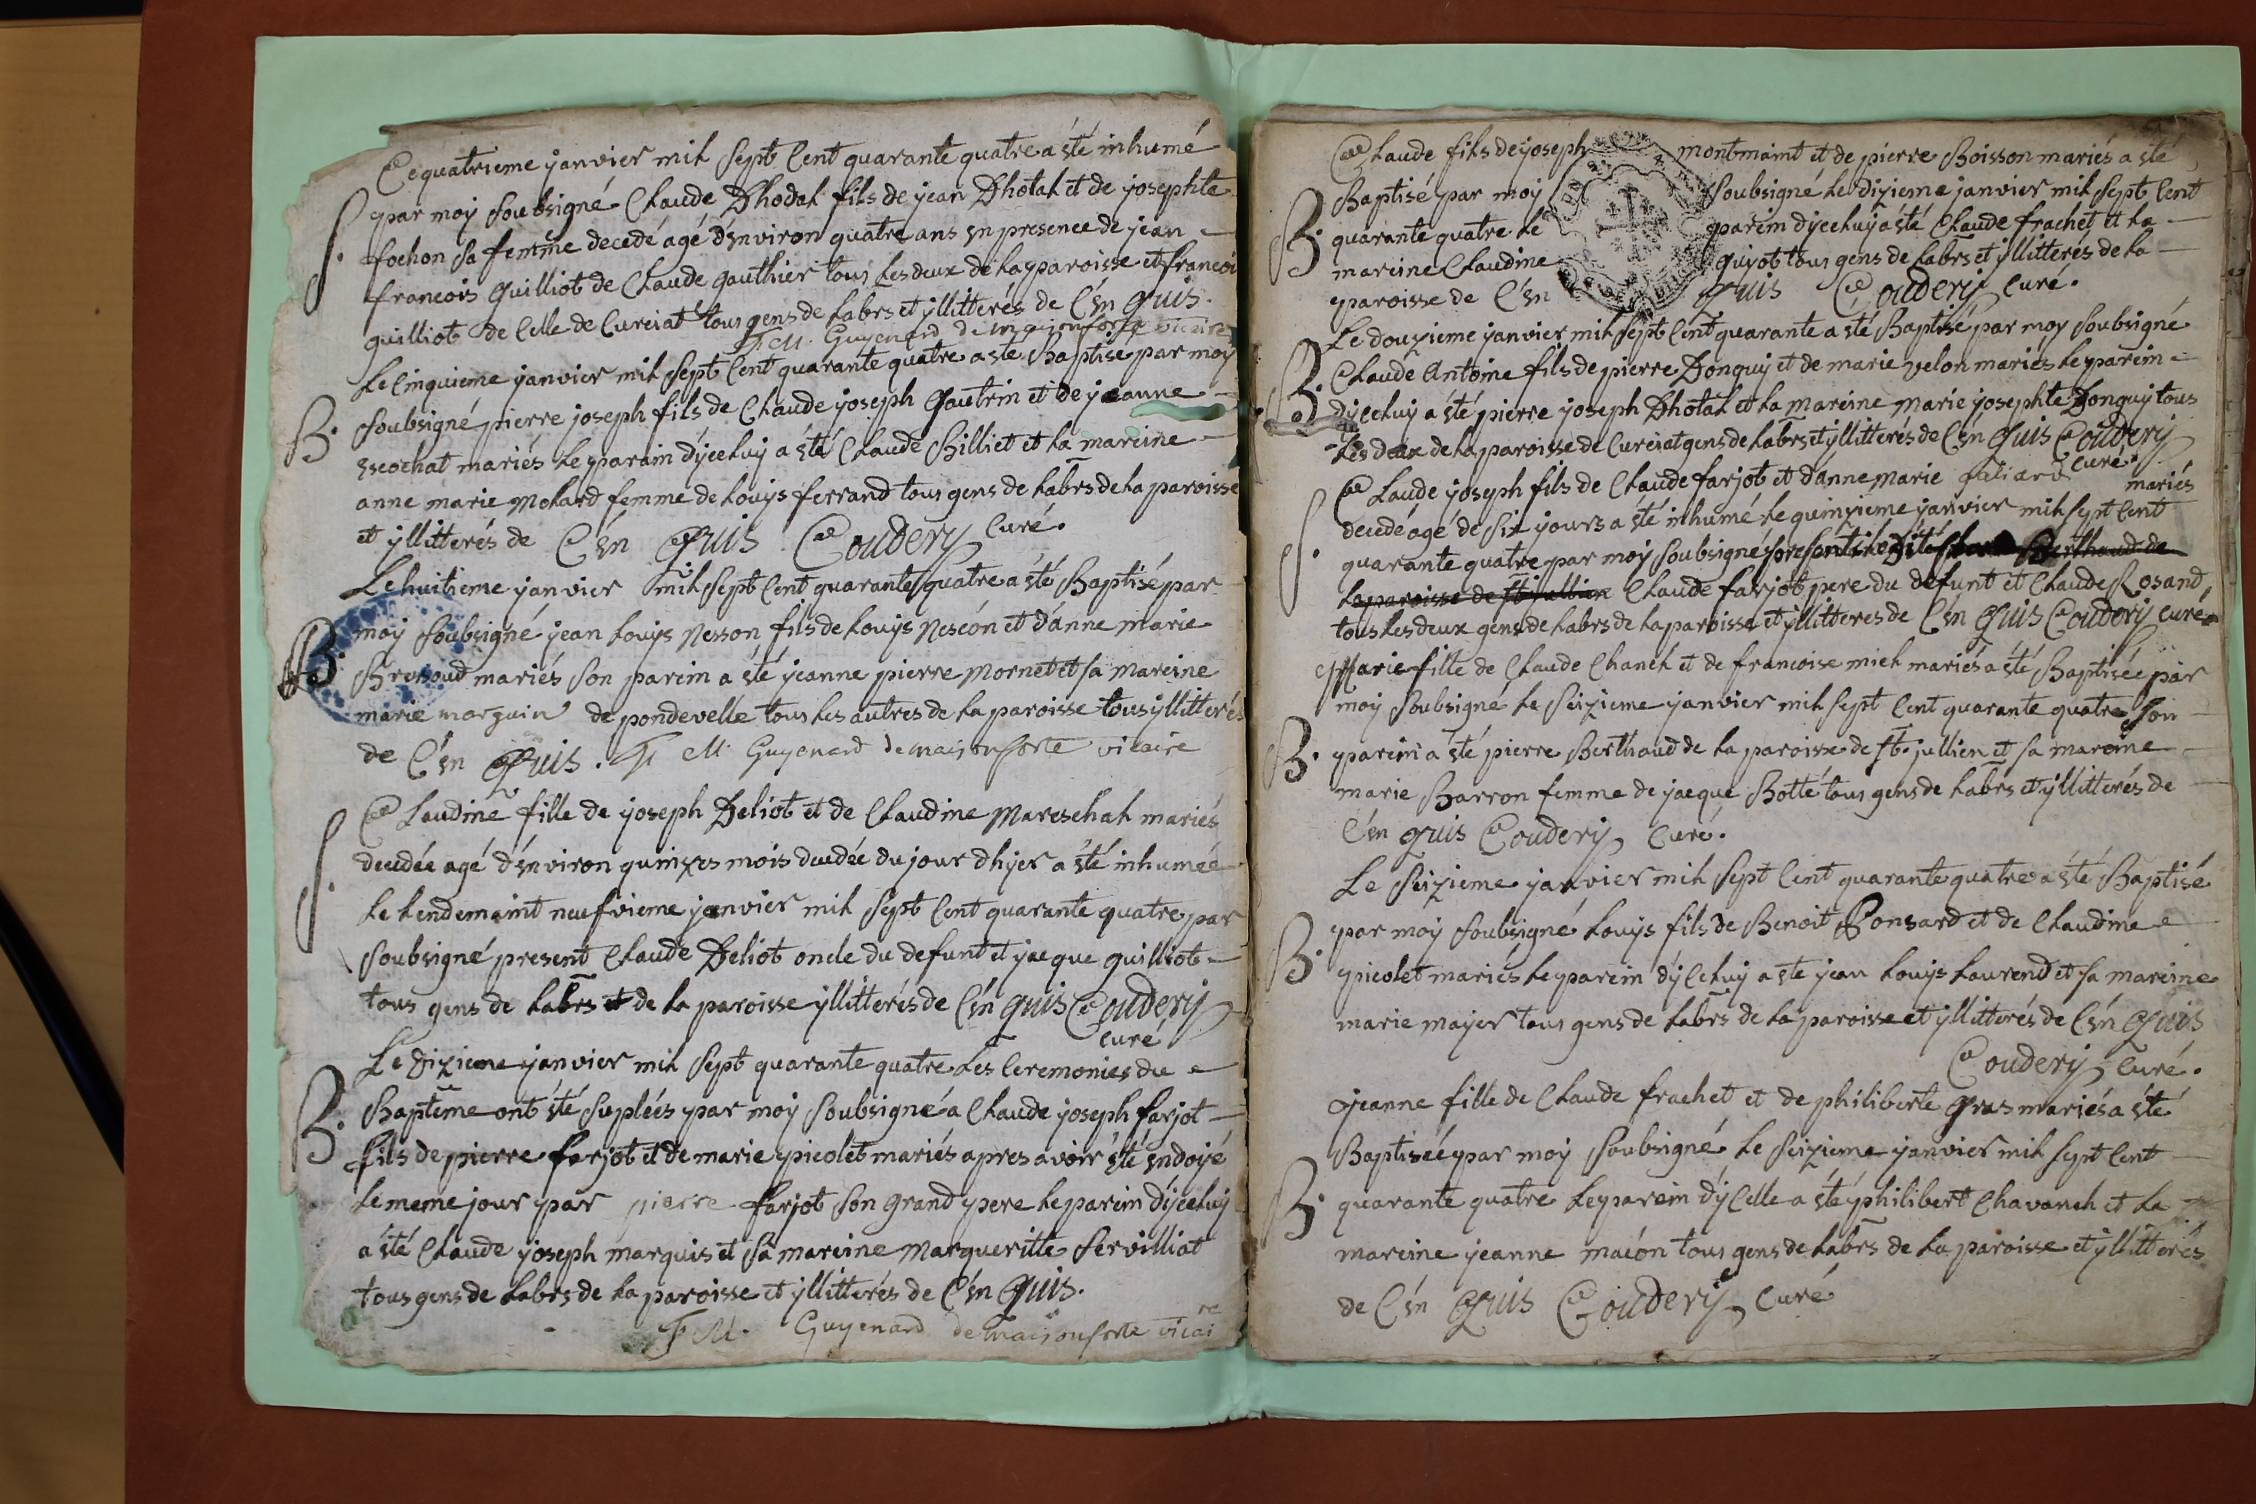 Ce quatrieme janvier mil sept Cent quarante quatre a été inhumé
S. par moy soubsigné Claude Dhotal fils de jean Dhotal et de josephte
fochon sa femme decedé agé d'environ quatre ans en presence de jean
francois guilliot de Claude gauthier tous les deux de la paroisse et francois
guilliot de Celle de Cureiat tous gens de labrs et yllitterés de C'en quis.
F. M. Guyenard de maisonforte vicaire
Le Cinquieme janvier mil sept Cent quarante quatre a été Baptisé par moy
B. soubsigné pierre joseph fils de Claude joseph gautrin et de jeanne
escochat mariés le parain d'yceluy a été Claude Billiet et la mareine
anne marie Molard femme de louys ferrand tous gens de labrs de la paroisse
et yllitterés de C'en quis Coudery Curé.
Le huitieme janvier mil sept Cent quarante quatre a été Baptisé par
B. moy soubsigné jean louys Nesson fils de louys Nescon et d'anne marie
mariés son parein a sté jeanne pierre Mornet et sa mareine
marie morguin de pondevelle tous les autres de la paroisse tous yllitterés
de C'en quis. F. M. Guyenard de maisonforte vicaire
Claudine fille de joseph Deliot et de Claudine Mareschal mariés
S. decedée agé d'environ quinzes mois decedée du jour d'hyer a été inhumée
le lendemaint neufvieme janvier mil sept Cent quarante quatre par
soubsigné present Claude Deliot oncle du defunt et jacque guilliot
tous gens de labrs et de la paroisse yllitterés de C'en quis Coudery
Curé
Le Dizieme janvier mil sept quarante quatre les Ceremonies du
B. Baptême ont été suplées par moy soubsigné a Claude joseph farjot
fils de pierre farjot et de marie picolet mariés apres avoir été endoyé
le meme jour par pierre farjot son grand pere le parein d'yceluy
a été Claude joseph marquis et sa mareine Margueritte Servilliat
tous gens de labrs de la paroisse et yllitterés de C'en quis.
F. M. Guyenard de maisonforte vicaire
Claude fils de joseph montmaint et de pierre Boisson mariés a sté
B. Baptisé par moy soubsigné le dizieme janvier mil sept Cent
quarante quatre le parein d'yceluy a sté Claude frachet et la
mareine Claudine guyot tous gens de labrs et yllitterés de la
paroisse de C'en quis Coudery Curé.
Le douzieme janvier mil sept Cent quarante a sté Baptisé par moy soubsigné
B. Claude Antoine fils de pierre Donguy et de marie velon mariés le parein
d'yceluy a sté pierre joseph Dhotal et la mareine Marie josephte Donguy tous
les deux de la paroisse de Cureiat gens de labrs et yllitterés de C'en quis Coudery
Curé.
Claude joseph fils de Claude farjot et d'anne marie mariés
S. decedé agé de six jours a sté inhumé le quinzieme janvier mil sept Cent
quarante quatre par moy soubsigné Berthaud de
la paroisse de st jullien Claude farjot pere du defunt et Claude Rosand
tous les deux gens de labrs de la paroisse et yllitteres de C'en quis Coudery Curé
Marie fille de Claude Chanel et de francoise miel mariés a été Baptisée par
moy soubsigné le seizieme janvier mil sept Cent quarante quatre son
B. parein a sté pierre Berthaud de la paroisse de st. jullien et sa mareine
marie Barron femme de jacque Botté tous gens de labrs et yllitterés de
C'en quis Coudery Curé.
Le seizieme janvier mil sept Cent quarante quatre a été Baptisé
B. par moy soubsigné louys fils de Benoit Ponsard et de Claudine
picolet mariés le parein d'yceluy a sté jean louys laurend et sa mareine
marie mayer tous gens de labrs de la paroisse et yllitterés de C'en quis
Coudery Curé.
jeanne fille de Claude frachet et de philiberte gras mariés a été
Baptisée par moy soubsigné le seizieme janvier mil sept Cent
B. quarante quatre le parein d'ycelle a sté philibert Chavanel et la
mareine jeanne maćon tous gens de labrs de la paroisse et yllitterés
de C'en quis Coudery Curé